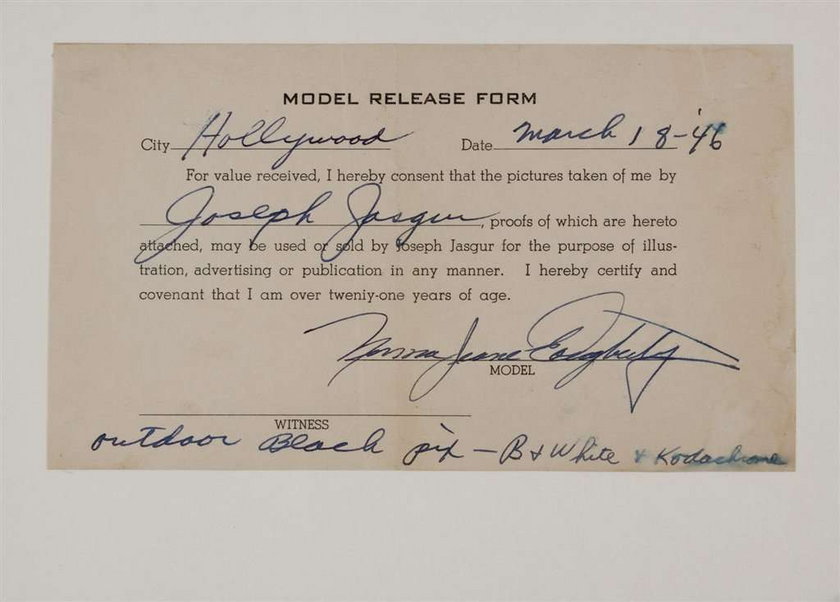 MODEL RELEASE FORM
City Hollywood Date March 18-'46
For value received, I hereby consent that the pictures taken of me by
Joseph Jasgur, proofs of which are hereto
attached, may be used or sold by Joseph Jasgur for the purpose of illus-
tration, advertising or publication in any manner. I hereby certify and
covenant that I am over twenty-one years of age.
Norma Jeane Dougherty
MODEL
WITNESS
outdoor Beach pix – B + White + Kodachrome